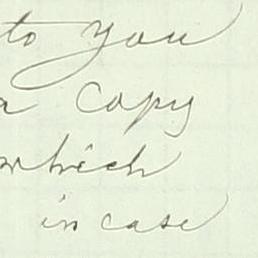 to you
a copy
which
in case